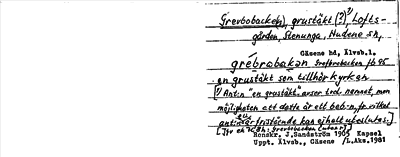 Grevbobacke(n), grustäkt (?), Lofts-
gården, Stenunga, Hudene sn,
Gäsene hd, Älvsb.l.
grèbrabakan Grefbrobacken fb 45
en grustäkt som tillhör kyrkan
Ant:n "en grustäkt" avser trol. namnet, men
möjligheten att detta är ett beb-n, för vilket
fristående kan ej helt uteslutas.]
Grevbobacken
Honskr. J.Sandström 1905 Kapsel
Uppt. Älvsb., Gäsene /L.Aks.1981